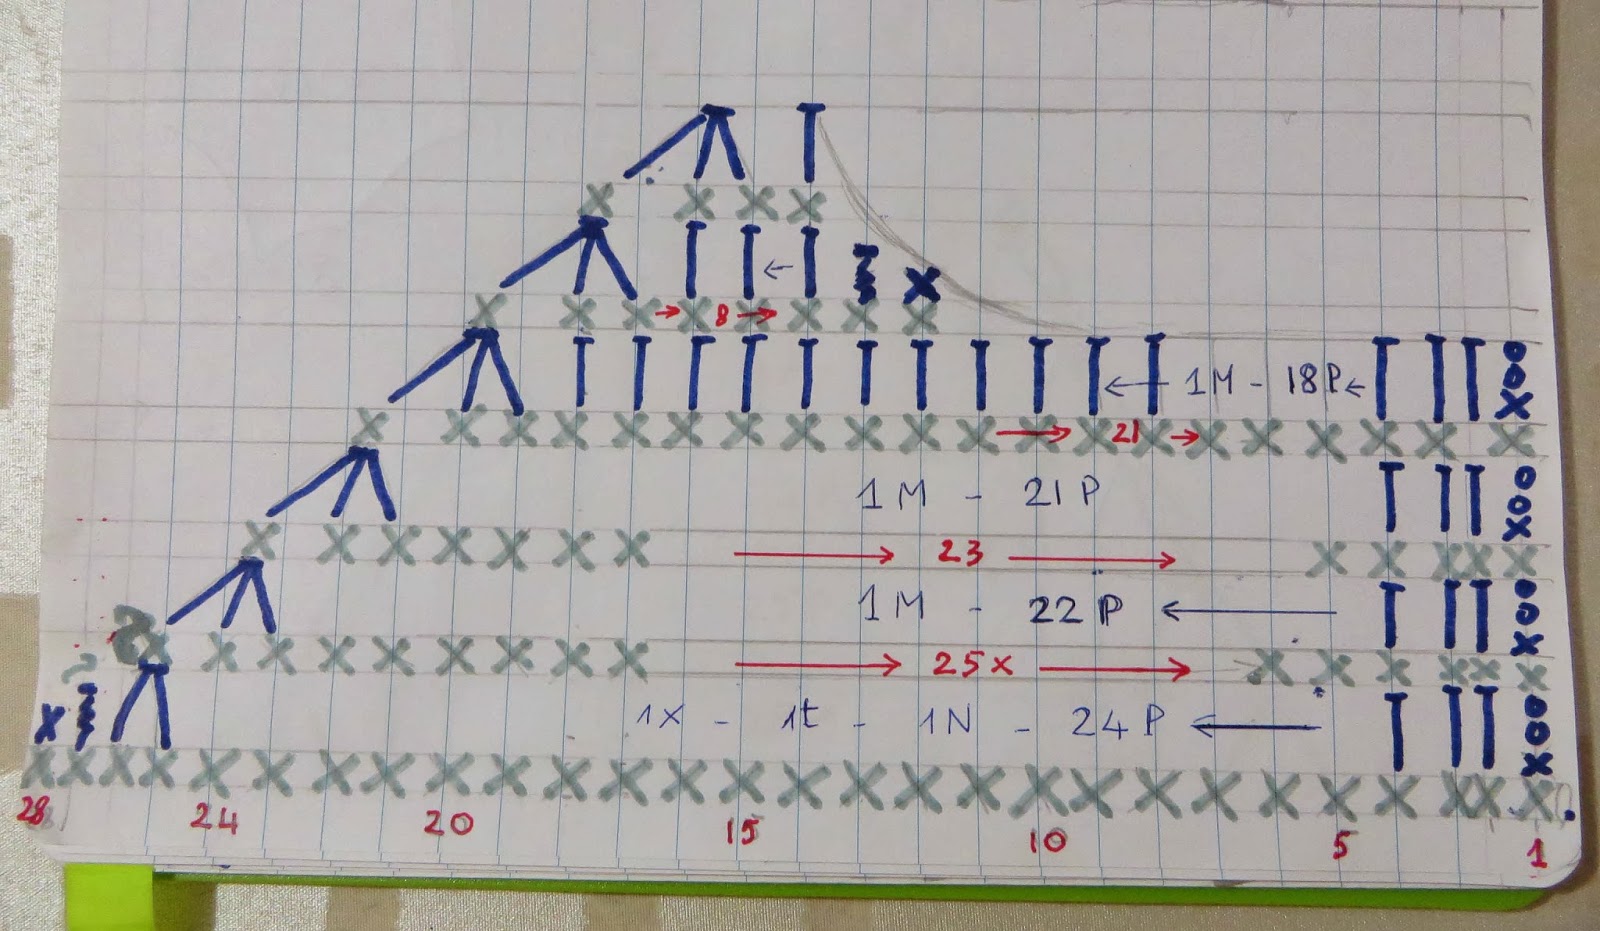 8
1M - 18P
21
1M - 21P
23
1M - 22P
25x
1x - 1t - 1N - 24P
28 24 20 15 10 5 1